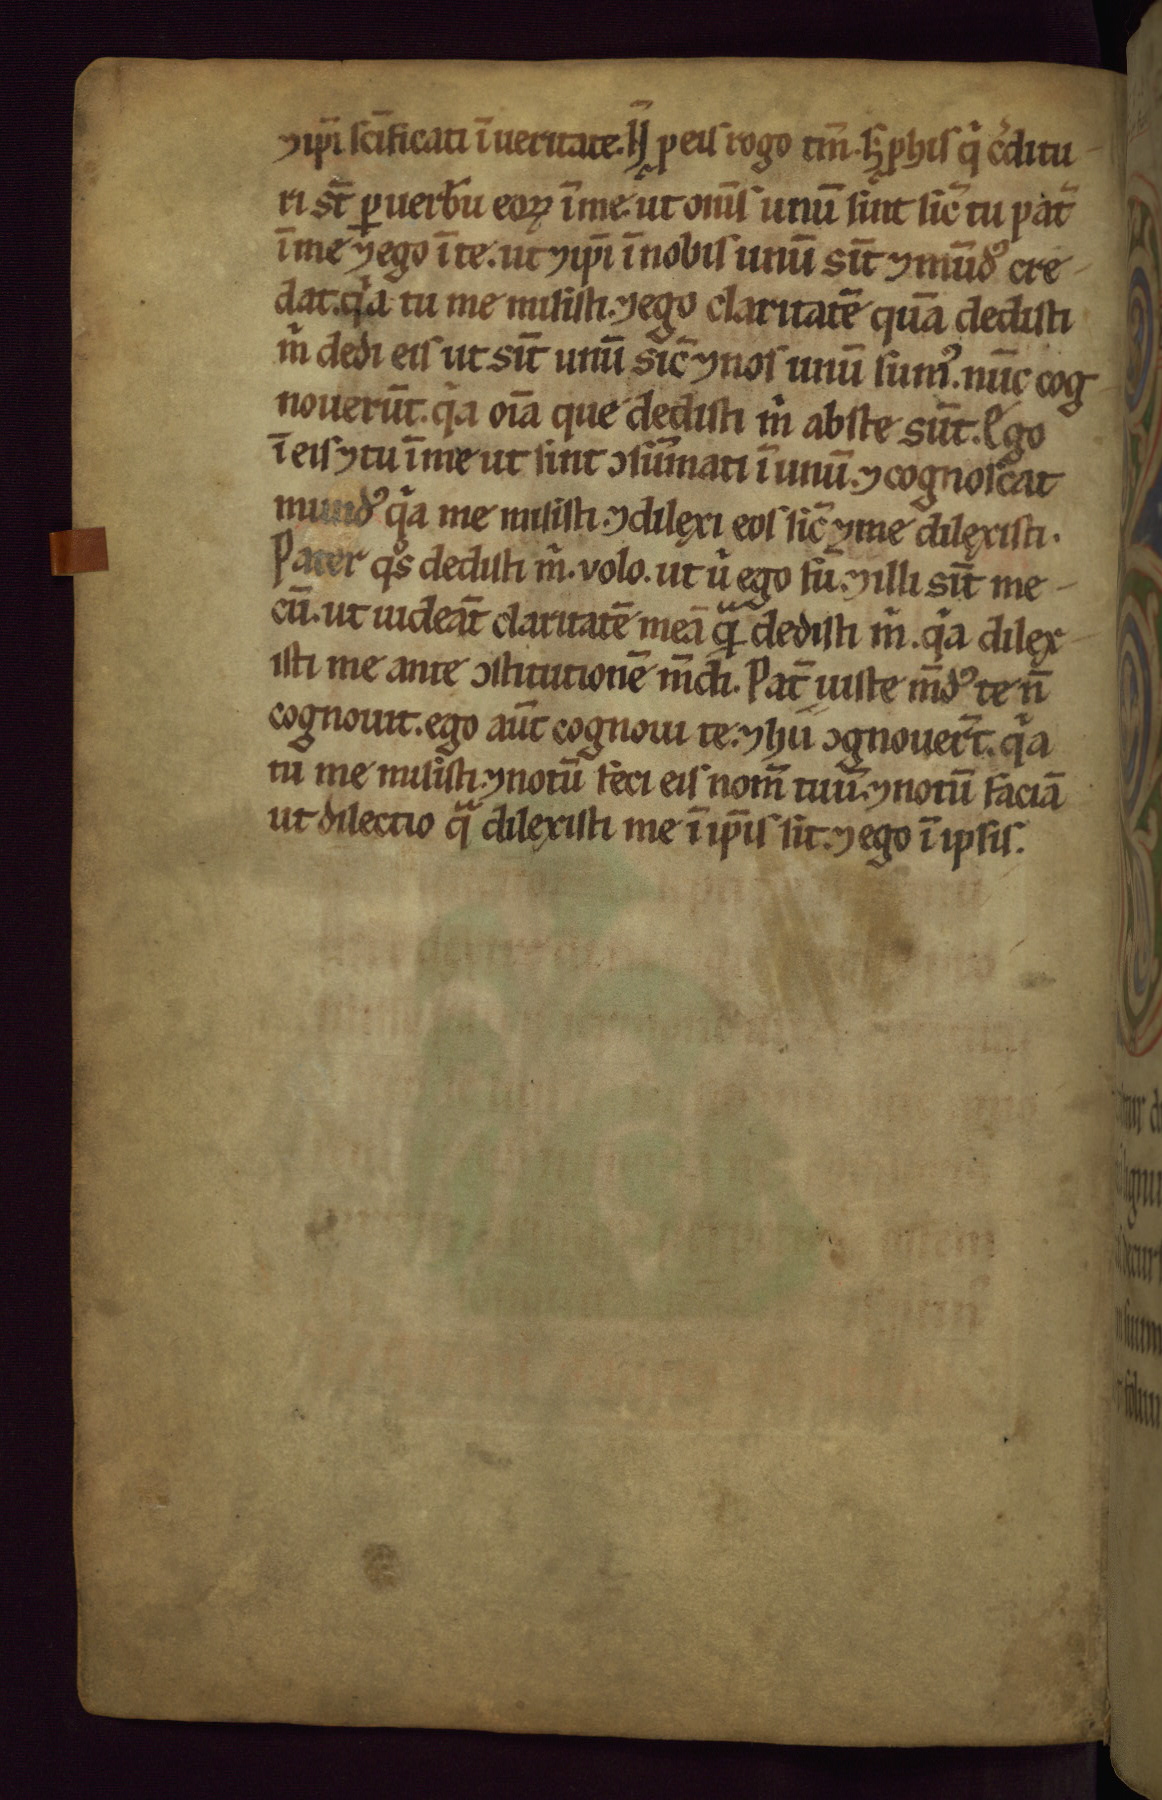 ⁊ ip̄i sc̄ificati ī ueritate. N̄ ꝓ eis rogo tm̄. S; ꝓ his q̇ c̄ditu
ri st̄ ꝑ uerbū eoꝝ ī me. ut om̄s unū sint sic̄ tu pat̄
ī me ⁊ ego ī te. ut ⁊ ip̄i ī nobis unū sīt ⁊ mūdꝰ cre
dat. qͥa tu me misisti. ⁊ ego claritatē quā dedisti
m̄ dedi eis ut sīt unū sic̄ ⁊ nos unū sumꝰ. nūc cog
nouerūt. qͥa oīa que dedisti m̄ abs te sūt. Ego
ī eis ⁊ tu ī me ut sint ↄsūmati ī unū. ⁊ cognoscat
mundꝰ qͥa me misisti ⁊ dilexi eos sic̄ ⁊ me dilexisti.
Pater qͦs dedisti m̄. volo. ut ū ego sū. ⁊ illi sīt me
cū. ut uideāt claritatē meā qͣ̄ dedisti m̄. qͥa dilex
isti me ante ↄstitutionē m̄di. Pat̄ iuste m̄dꝰ te n̄
cognouit. ego aūt cognoui te. ⁊ hii ↄgnouer̄t. qͥa
tu me misisti. ⁊ notū feci eis nom̄ tuū. ⁊ notū faciā
ut dilectio qͣ dilexisti me ī ip̄is sit. ⁊ ego ī ipsis.